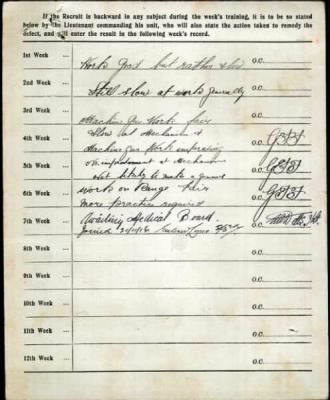 If the Recruit is backward in any subject during the week's training, it is to be so stated
below by the Lieutenant commanding his unit, who will also state the action taken to remedy the
defect, and will enter the result in the following week's record.
1st Week ... Works good but rather slow O.C.
2nd Week ... Still slow at work generally O.C.
3rd Week ... O.C.
Machine Gun Work fair
4th Week ... Slow at Mechanism & O.C.
Machine Gun Work improving
5th Week ... no improvement at Mechanism O.C.
not likely to make a gunner
6th Week ... Works on Range fair O.C.
more practice required
7th Week ... Awaiting Medical Board. O.C.
Joined
8th Week ... O.C.
9th Week ... O.C.
10th Week ... O.C.
11th Week ... O.C.
12th Week ... O.C.